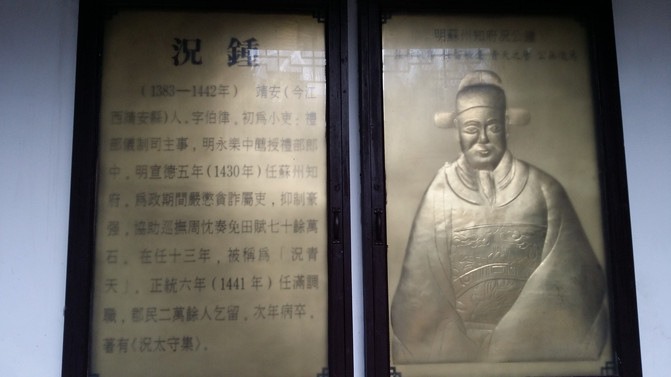 况鍾
(1383—1442年) 靖安(今江
西靖安縣)人，字伯律，初爲小吏、禮
部儀制司主事，明永樂中薦授禮部郎
中。明宣德五年(1430年)任蘇州知
府，爲政期間嚴懲貪詐屬吏，抑制豪
强，協助巡撫周忱奏免田賦七十餘萬
石。在任十三年，被稱爲「况青
天」。正統六年(1441年)任滿調
職，郡民二萬餘人乞留，次年病卒。
著有《况太守集》。
明蘇州知府况公鍾